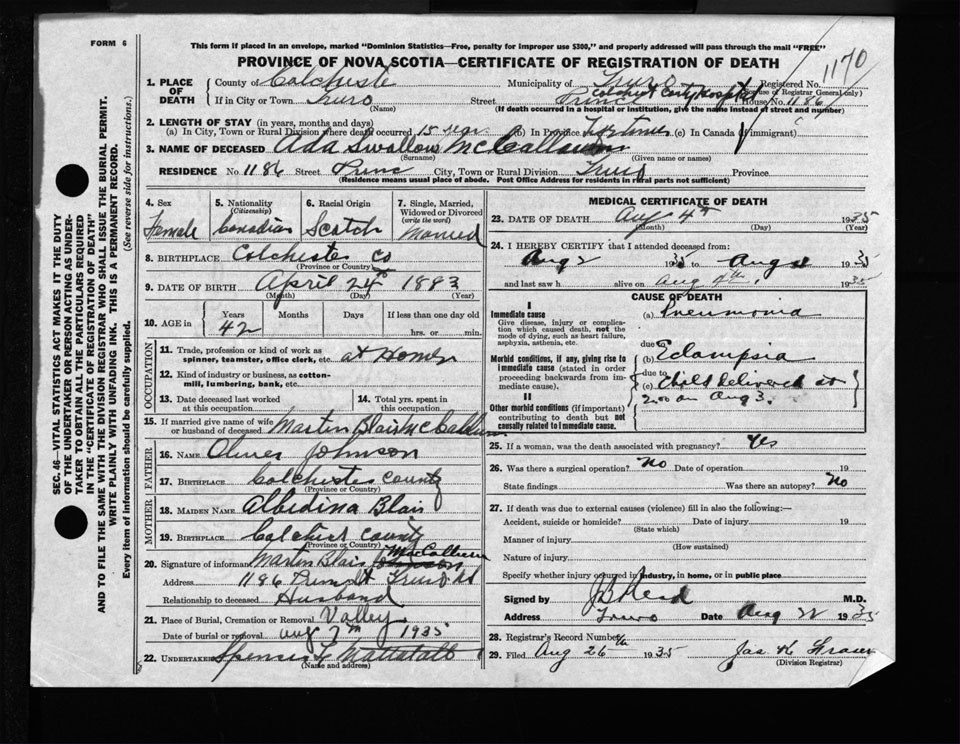 FORM 6
This form if placed in an envelope, marked "Dominion Statistics—Free, penalty for improper use $300," and properly addressed will pass through the mail "FREE"
PROVINCE OF NOVA SCOTIA—CERTIFICATE OF REGISTRATION OF DEATH
1170
1. PLACE OF DEATH
County of Colchester Municipality of Truro Registered No.
(For use of Registrar General only)
If in City or Town Truro Street Prince House No. 1186
(Name) (If death occurred in a hospital or institution, give the name instead of street and number)
2. LENGTH OF STAY (in years, months and days)
(a) In City, Town or Rural Division where death occurred 15 yrs. (b) In Province Lifetime (c) In Canada (if immigrant)
3. NAME OF DECEASED Ada Swallow McCallum
(Surname) (Given name or names)
RESIDENCE No. 1186 Street Prince City, Town or Rural Division Truro Province
(Residence means usual place of abode. Post Office Address for residents in rural parts not sufficient)
4. Sex Female
5. Nationality (Citizenship) Canadian
6. Racial Origin Scotch
7. Single, Married, Widowed or Divorced (write the word) Married
8. BIRTHPLACE Colchester Co
(Province or Country)
9. DATE OF BIRTH April 24th 1893
(Month) (Day) (Year)
10. AGE in Years 42 Months Days If less than one day old hrs. or min.
OCCUPATION
11. Trade, profession or kind of work as spinner, teamster, office clerk, etc. at Home
12. Kind of industry or business, as cotton-mill, lumbering, bank, etc.
13. Date deceased last worked at this occupation
14. Total yrs. spent in this occupation
15. If married give name of wife or husband of deceased Martin Blair McCallum
FATHER
16. NAME Oliver Johnson
17. BIRTHPLACE Colchester County
(Province or Country)
MOTHER
18. MAIDEN NAME Albedina Blair
19. BIRTHPLACE Colchester County
(Province or Country)
20. Signature of informant Martin Blair MacCallum
Address 1186 Prince St Truro NS
Relationship to deceased Husband
21. Place of Burial, Cremation or Removal Valley
Date of burial or removal Aug 7th 1935
22. UNDERTAKER Spencer L Mattatall
(Name and address)
MEDICAL CERTIFICATE OF DEATH
23. DATE OF DEATH Aug 4th 1935
(Month) (Day) (Year)
24. I HEREBY CERTIFY that I attended deceased from:
Aug 2 1935 to Aug 1935
and last saw h alive on Aug 4th, 1935
CAUSE OF DEATH
I
Immediate cause
Give disease, injury or complication which caused death, not the mode of dying, such as heart failure, asphyxia, asthenia, etc.
(a) Pneumonia
due to
Morbid conditions, if any, giving rise to immediate cause (stated in order proceeding backwards from immediate cause).
(b) Eclampsia
due to
(c) Child delivered at
2.00 on Aug 3.
II
Other morbid conditions (if important) contributing to death but not causally related to immediate cause.
25. If a woman, was the death associated with pregnancy? Yes
26. Was there a surgical operation? No Date of operation 19
State findings Was there an autopsy? No
27. If death was due to external causes (violence) fill in also the following:—
Accident, suicide or homicide? Date of injury 19
(State which)
Manner of injury
(How sustained)
Nature of injury
Specify whether injury occurred in industry, in home, or in public place
Signed by M.D.
Address Truro Date Aug 22 1935
28. Registrar's Record Number
29. Filed Aug 26th 1935 Jas K Fraser
(Division Registrar)
SEC. 46—VITAL STATISTICS ACT MAKES IT THE DUTY
OF THE UNDERTAKER OR PERSON ACTING AS UNDER-
TAKER TO OBTAIN ALL THE PARTICULARS REQUIRED
IN THE "CERTIFICATE OF REGISTRATION OF DEATH"
AND TO FILE THE SAME WITH THE DIVISION REGISTRAR WHO SHALL ISSUE THE BURIAL PERMIT.
WRITE PLAINLY WITH UNFADING INK. THIS IS A PERMANENT RECORD.
Every item of information should be carefully supplied. (See reverse side for instructions.)